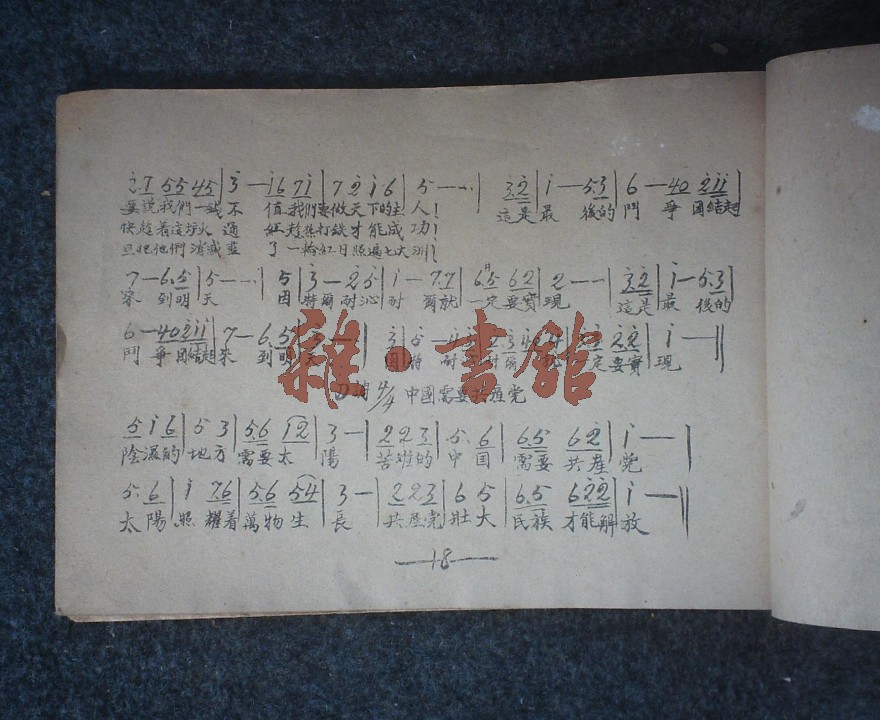 2.1 55 45 | 3 — 16 71 | 7 2 1 6 | 5 — ·· | 32 | 1 — 5.3 | 6 — 40 211 |
要說我們一錢不 值 我們要做天下的主 人！ 這是 最 後的 鬥 爭 團結起
快趁着這爐火通 紅 趁熱打鉄才能成 功！
旦把他們消滅 了 一輪紅日照遍七大洲！
7 — 6.5 | 5 — ·· 5 | 3 — 2 5 | 1 — 7.7 | 6.5 62 | 2 — ·· | 32 | 1 — 5.3 |
來 到明 天 因 特爾耐沁 耐 爾就 一定要實 現 這是 最 後的
6 — 40 211 | 7 — 6.5
鬥 爭 團結起 來 到明 一定要實 現
雜·書館
D調 4/4 中國需要共產党
5 1 6 | 5 3 | 5.6 12 | 3 — | 2 2 3 | 5. 6 | 6.5 62 | 1 — |
陰濕的 地方 需要太 陽 苦难的 中国 需要 共產 党
5. 6 | 1 7.6 | 5.6 54 | 3 — | 2 2 3 | 6 5 | 6.5 622 | 1 — ||
太陽 照耀着 萬物生 長 共產党 壯大 民族 才能解 放
—18—